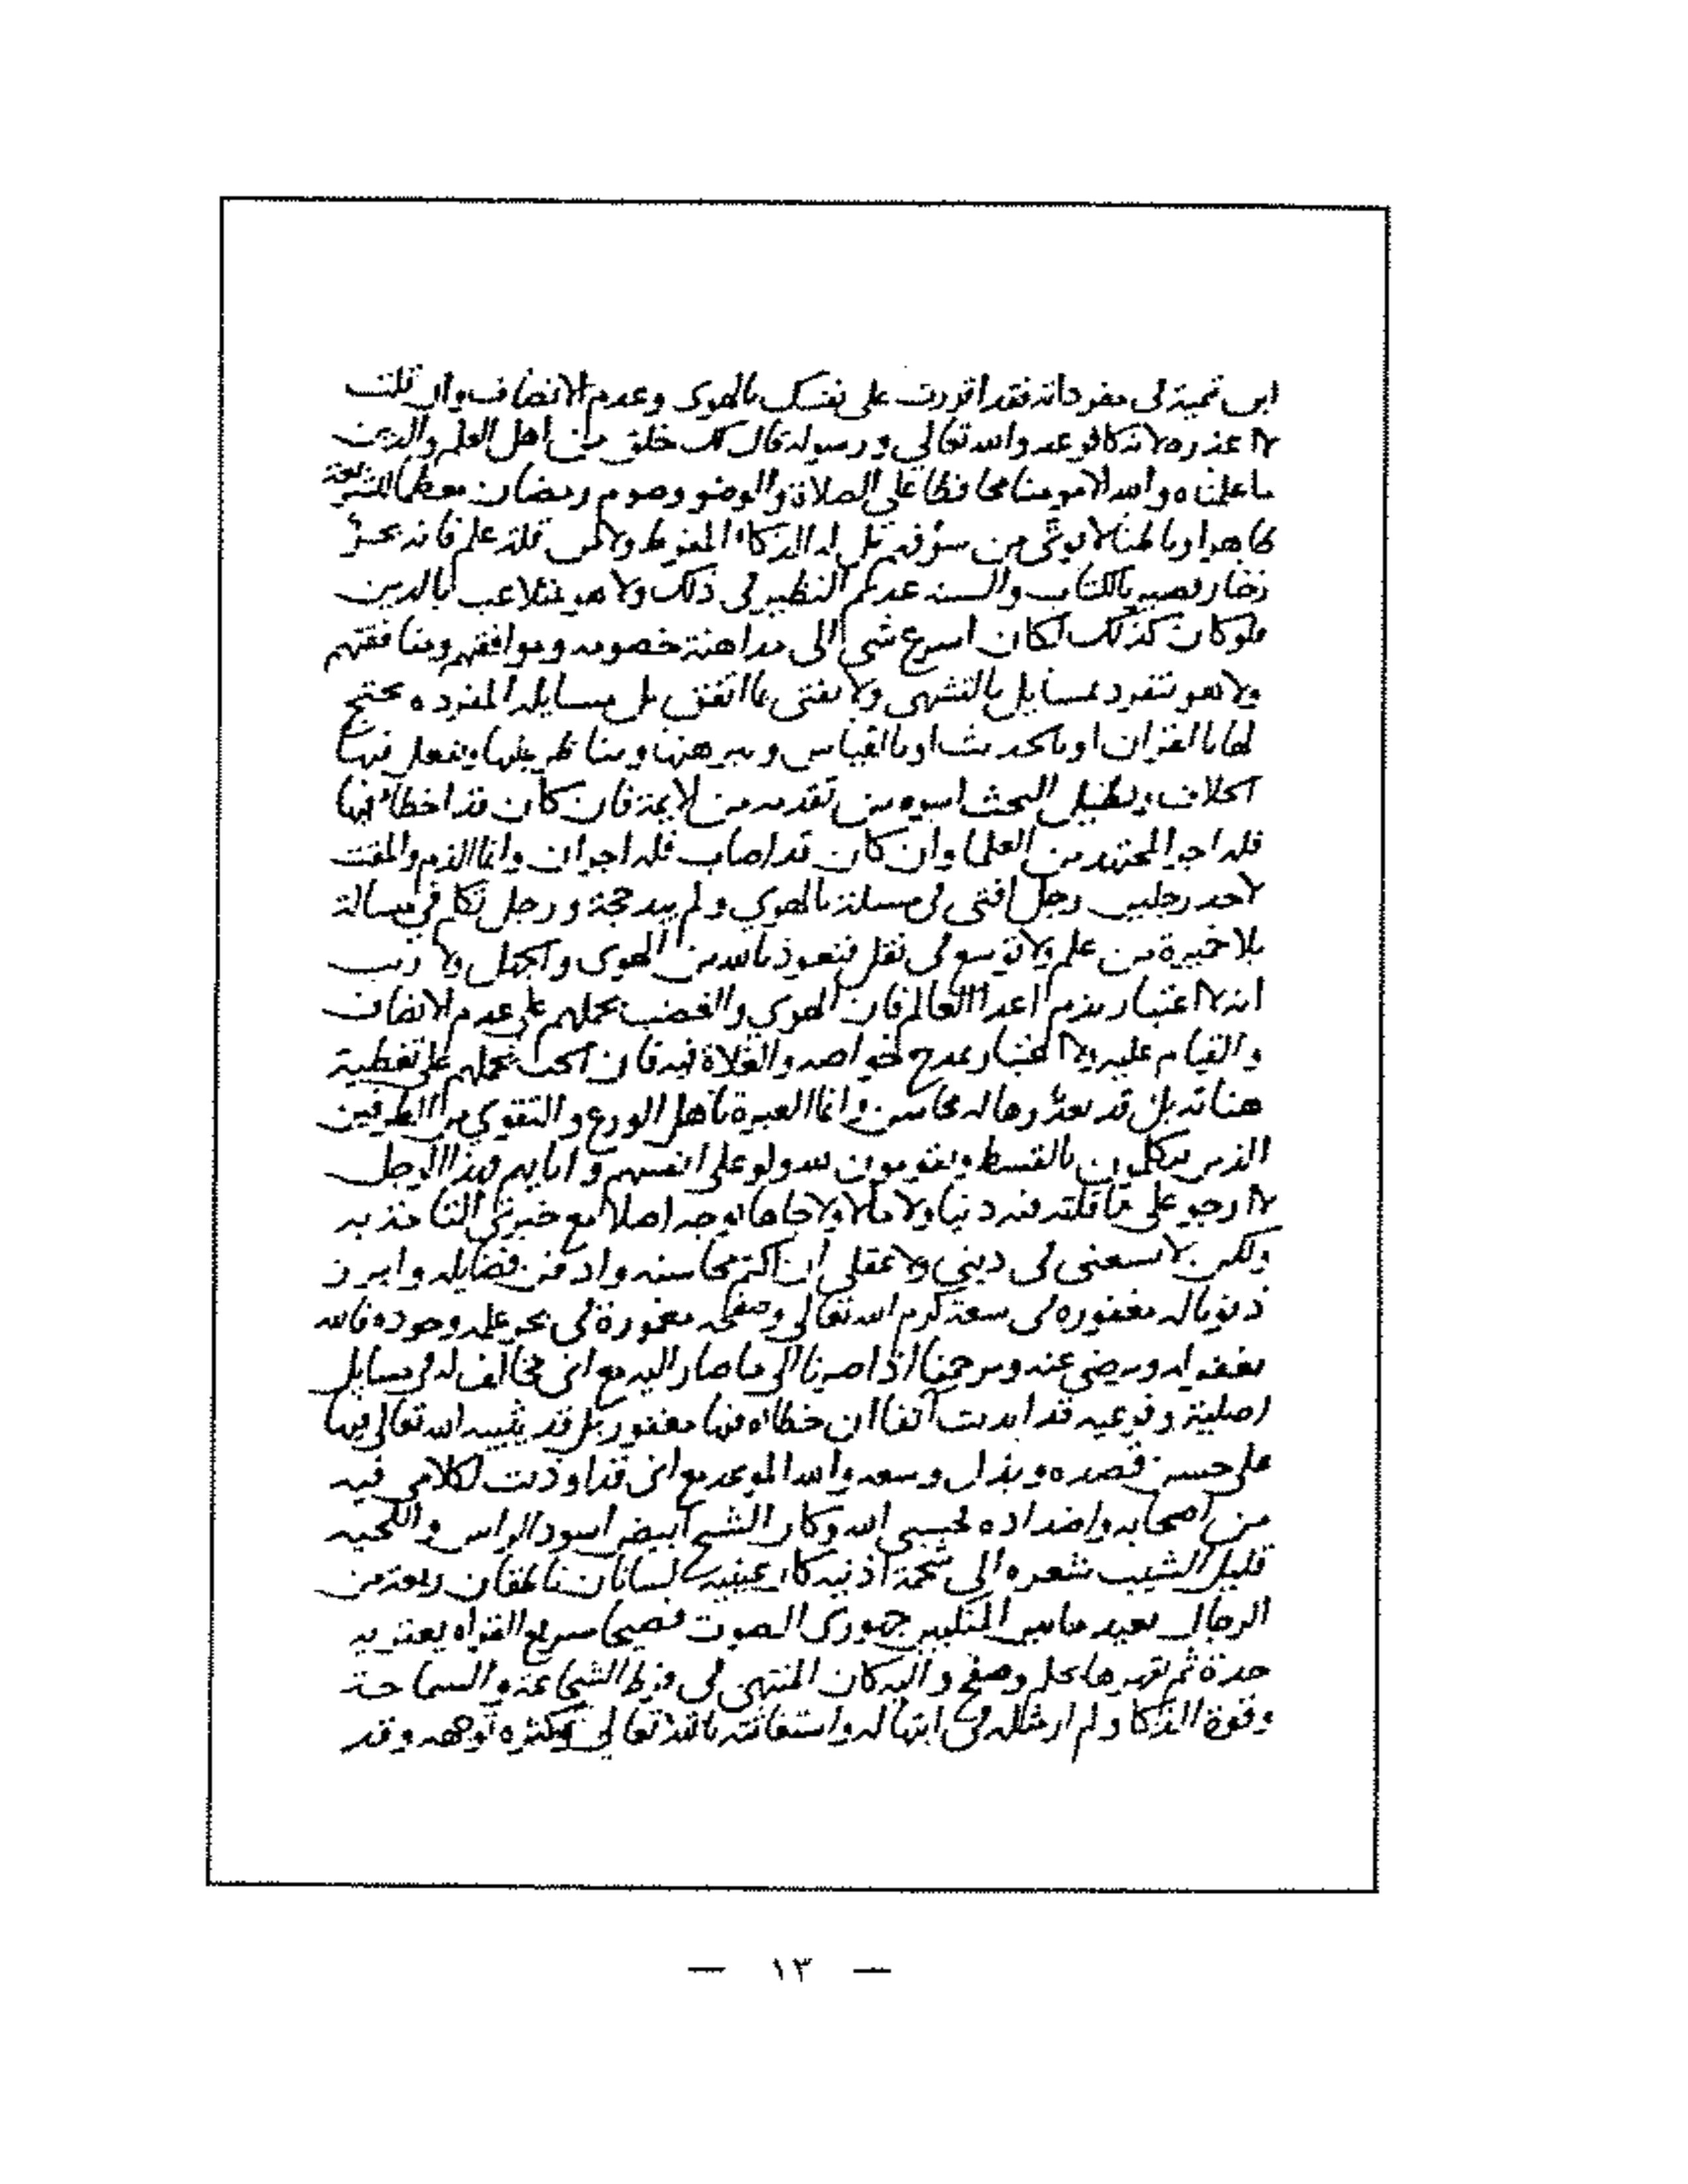 ابن تيمية في مفرداته فقد اقررت على نفسك بالهوى وعدم الانصاف وان قلت
لا اعذره لانه كافر عدو الله تعالى ورسوله قال لك خلق من اهل العلم والدين
ما علمناه والله الا مومنا محافظا على الصلاة والوضو وصوم رمضان معظما للشريعة
ظاهرا وباطنا لا يوتى من سؤ فهم بل له الذكاء المفرط ولا من قلة علم فانه بحر
زخار بصير بالكتاب والسنه عديم النظير في ذلك ولا هو بمتلاعب بالدين
فلو كان كذلك لكان اسرع شي الى مداهنة خصومه وموافقتهم ومنافقتهم
ولا هو يتفرد بمسايل بالتشهي ولا يفتي بما اتفق بل مسايله المفرده يحتج
لها بالقران او بالحديث او بالقياس ويبرهنها ويناظر عليها وينقل فيها
الخلاف ويطيل البحث اسوه من تقدمه من الايمة فان كان قد اخطأ فيها
فله اجر المجتهد من العلما وان كان قد اصاب فله اجران وانما الذم والمقت
لاحد رجلين رجل افتى في مسلة بالهوي ولم يبد حجة ورجل تكلم في مسالة
بلا خميرة من علم ولا توسع في نقل فنعوذ بالله من الهوى والجهل ولا ريب
انه لا اعتبار بذم اعدا العالم فان الهوي والغضب يحملهم على عدم الانصاف
والقيام عليه ولا اعتبار بمدح خواصه والغلاة فيه فان الحب يحملهم على تغطية
هناته بل قد يعدوها له محاسن وانما العبرة باهل الورع والتقوي من الطرفين
الذين يتكلمون بالقسط ويقومون لله ولو على انفسهم وابايهم فهذا الرجل
لا ارجو على ما قلته فيه دنيا ولا مالا ولا جاها بوجه اصلا مع خبرتي التامة به
ولكن لا يسعني في ديني ولا عقلي ان اكتم محاسنه وادفن فضايله وابرز
ذنوبا له مغفوره في سعة كرم الله تعالى وصفحه مغمورة في بحر علمه وجوده فالله
يغفر له ويرضى عنه ويرحمنا اذا صرنا الى ما صار اليه مع اني مخالف له في مسايل
اصلية وفرعيه قد ابديت آنفا ان خطأه فيها مغفور بل قد يثيبه الله تعالى فيها
على حسن قصده وبذل وسعه والله الموعد مع اني قد اوذيت لكلامي فيه
من اصحابه واضداده فحسبي الله وكان الشيخ ابيض اسود الراس واللحيه
قليل الشيب شعره الى شحمة اذنيه كان عينيه لسانان ناطقان ربعة من
الرجال بعيد ما بين المنكبين جهوري الصوت فصيحا سريع القراه يعتريه
حدة ثم يقهرها بحلم وصفح واليه كان المنتهى في فرط الشجاعة والسماحة
وقوة الذكا ولم ار مثله في ابتهاله واستغاثته بالله تعالى وكثره توجهه وقد
— ١٣ —